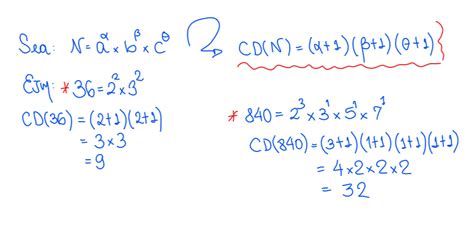 Sea: N = a^α × b^β × c^θ
CD(N) = (α+1)(β+1)(θ+1)
Ejm: * 36 = 2^2 × 3^2
CD(36) = (2+1)(2+1)
= 3 × 3
= 9
* 840 = 2^3 × 3^1 × 5^1 × 7^1
CD(840) = (3+1)(1+1)(1+1)(1+1)
= 4 × 2 × 2 × 2
= 32